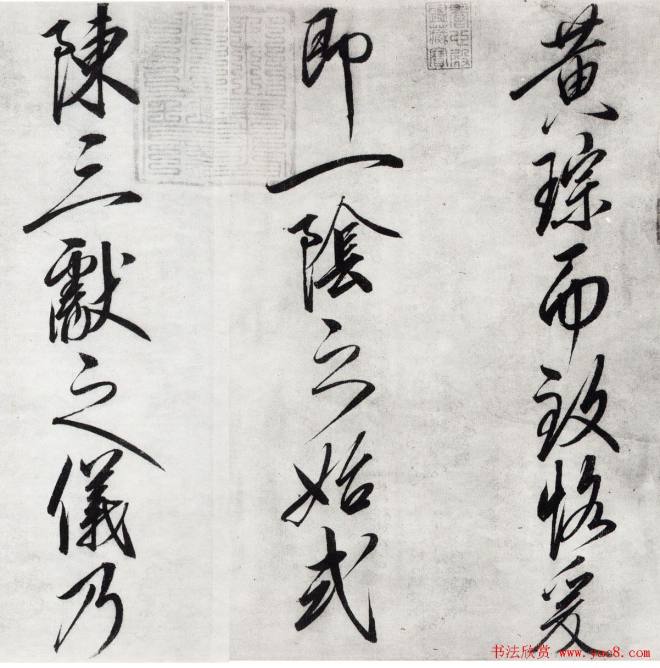 黄琮而致恪爰
即一陰之始式
陳三獻之儀乃
书法欣赏 www.yac8.com